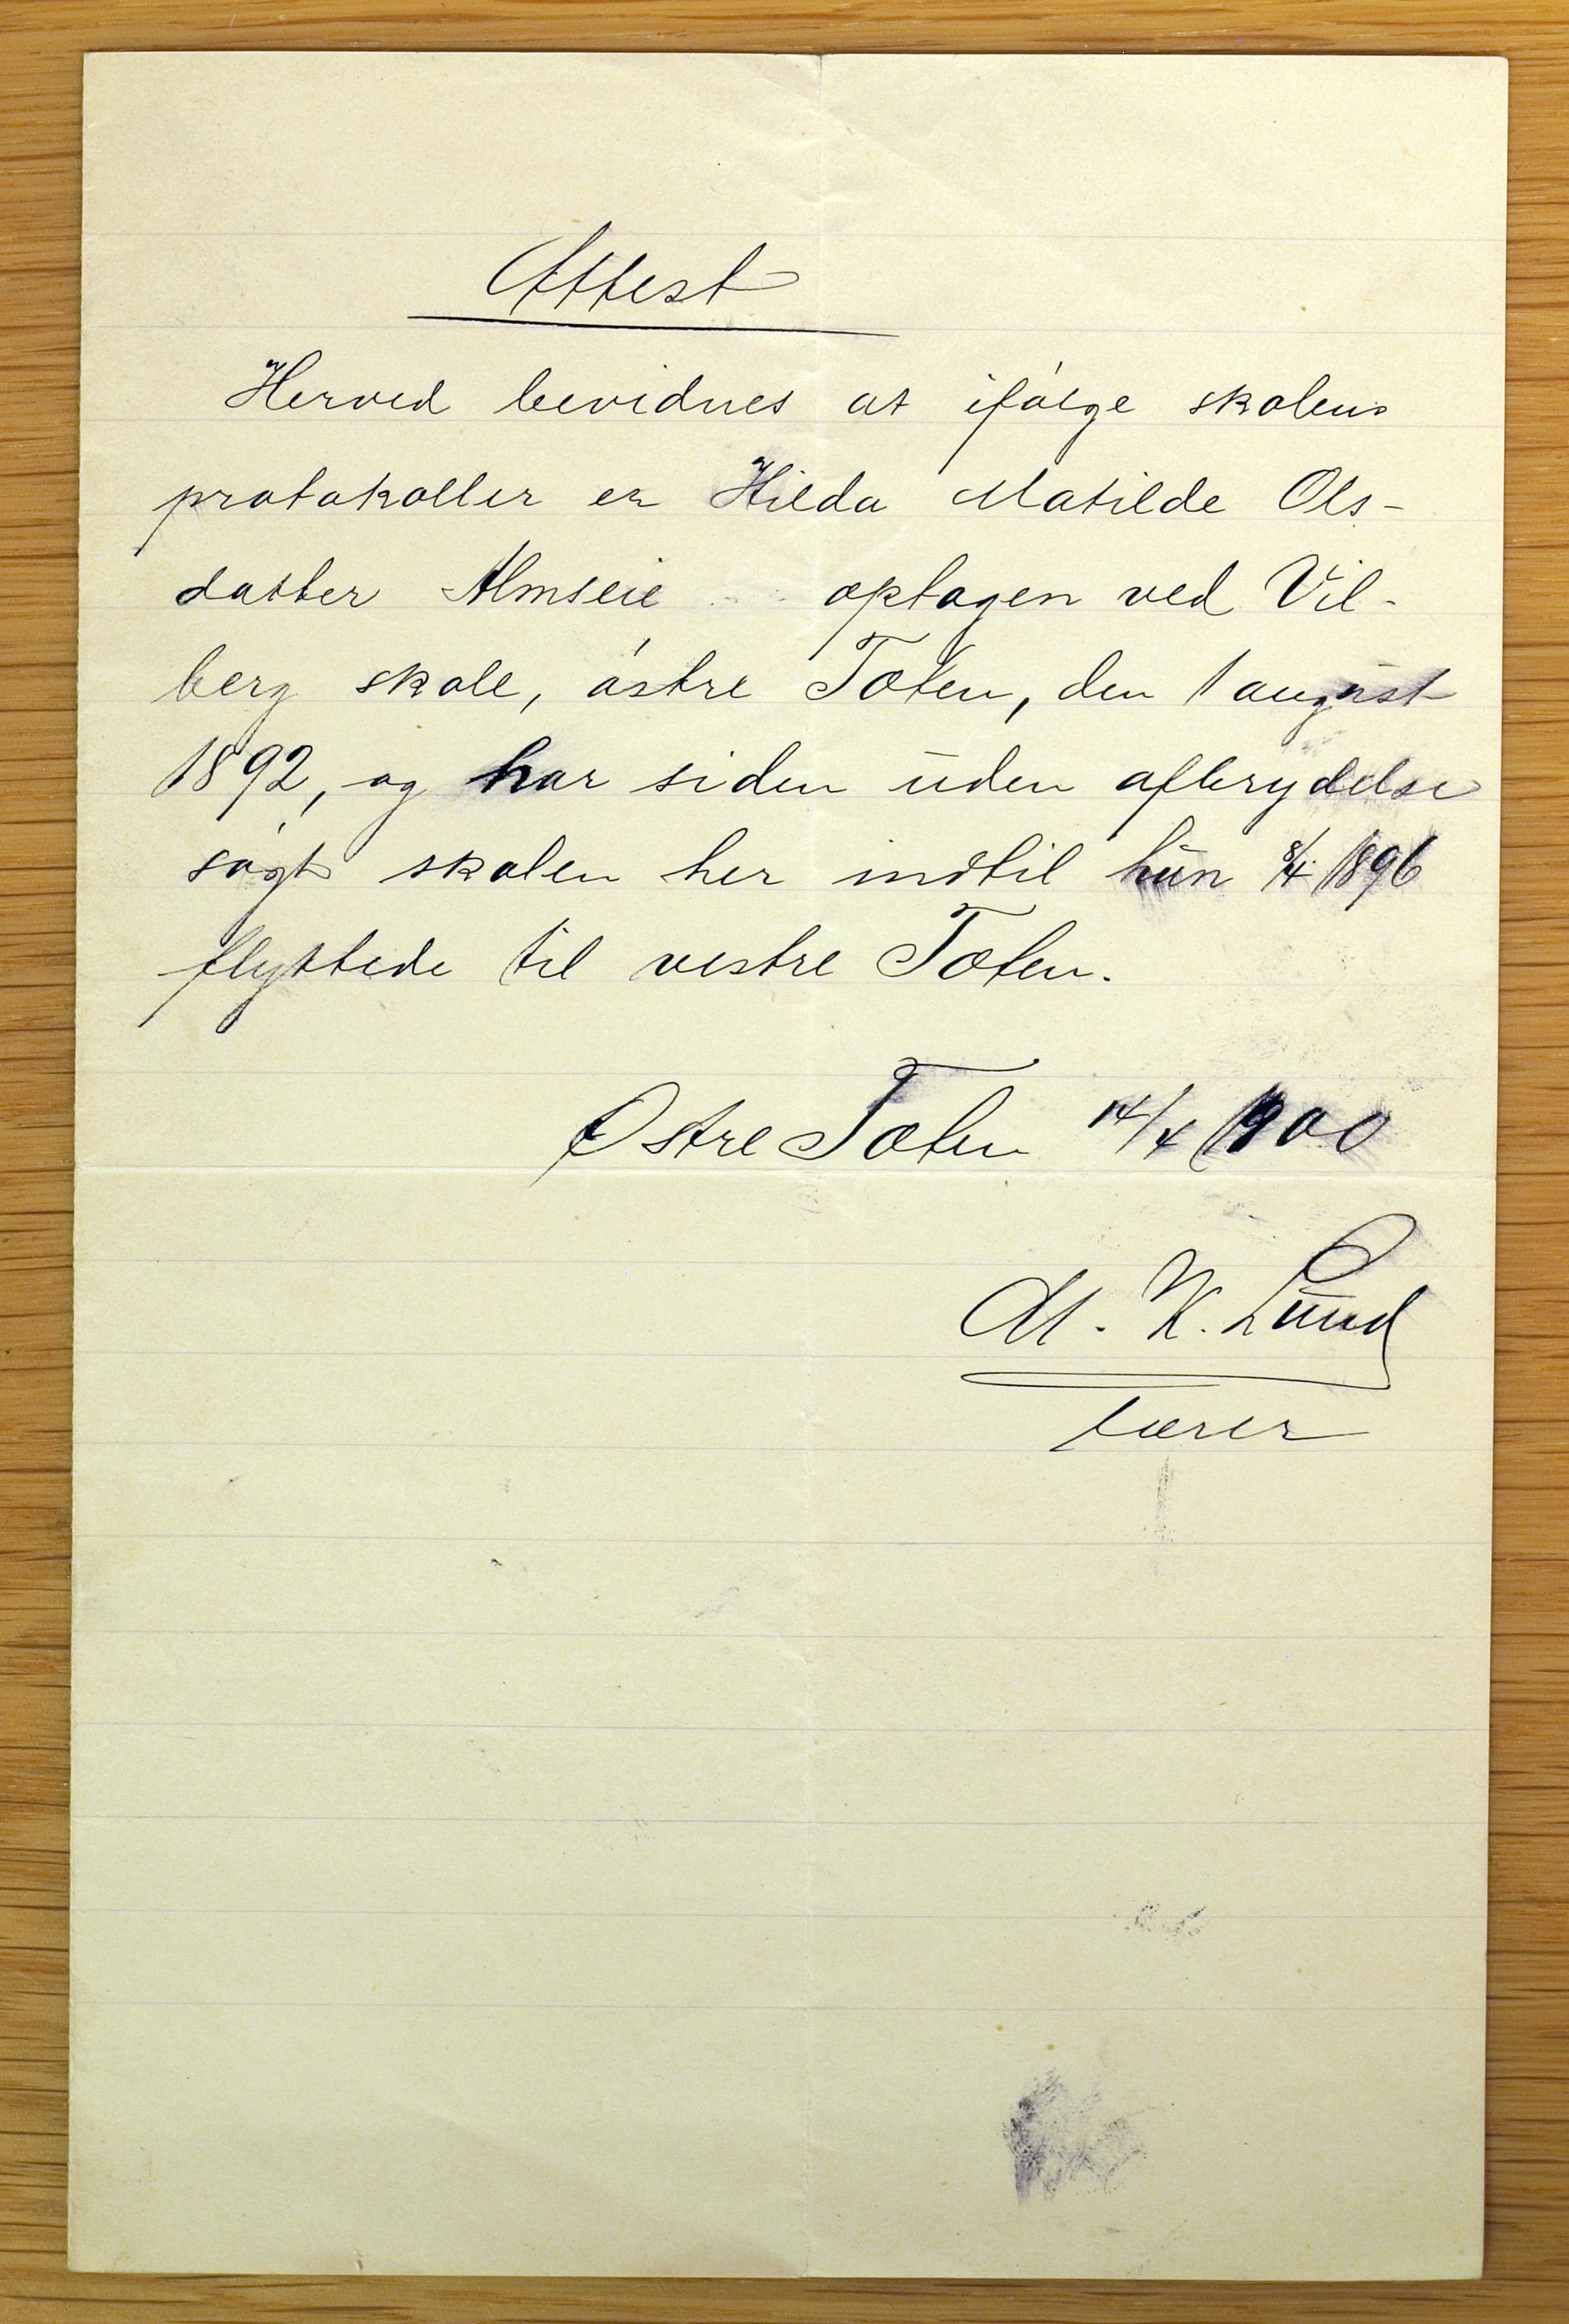 Attest
Herved bevidnes at ifølge skolens
protokoller er Hilda Matilde Ols-
datter Almseie optagen ved Vil-
berg skole, østre Toten, den 1 august
1892, og har siden uden afbrydelse
søgt skolen her indtil hun 8/4 1896
flyttede til vestre Toten.
Østre Toten 14/4 1900
M. K. Lund
lærer